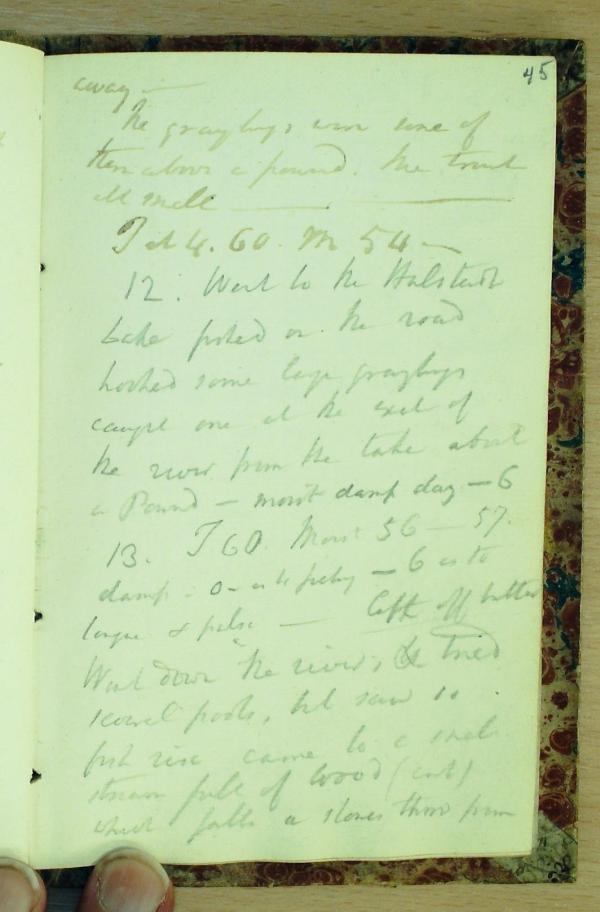 45
away —
The graylings were some of
them above a pound. The trout
all small
T at 4. 60. M 54 —
12. Went to the Halstadt
Lake fished on the road
hooked some large graylings
caught one at the exit of
the river from the lake about
a Pound — moist damp day — 6
13. T 60. Moist 56 — 57.
damp - 0 - as to fishing — 6 as to
tongue & pulse — Left off butter
Went down the river & tried
several pools, but saw no
fish rise came to a small
stream full of wood (cut)
which falls a stones throw from